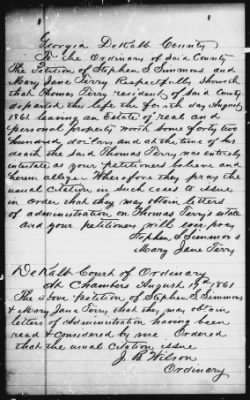 Georgia DeKalb County
To the Ordinary of Said County
The Petition of Stephen S Simmons and
Mary Jane Terry Respectfully Showeth
that Thomas Terry resident of Said County
departed this left the fourth day August
1861 leaving an Estate of real and
personal property worth some forty two
hundred dollars and at the time of his
death the said Thomas Terry was entirely
intestate as your petitioners believe and
herein allege. Wherefore they pray the
usual Citation in such cases to issue
in order that they may obtain letters
of administration on Thomas Terry's estate
and your petitioners will ever pray
Stephen S Simmons
Mary Jane Terry
DeKalb Court of Ordinary
At Chambers August 19th 1861
The above petition of Stephen S Simmons
& Mary Jane Terry that they may obtain
letters of Administration having been
read & considered by me Ordered
that the usual citation issue
J. B. Wilson
Ordinary